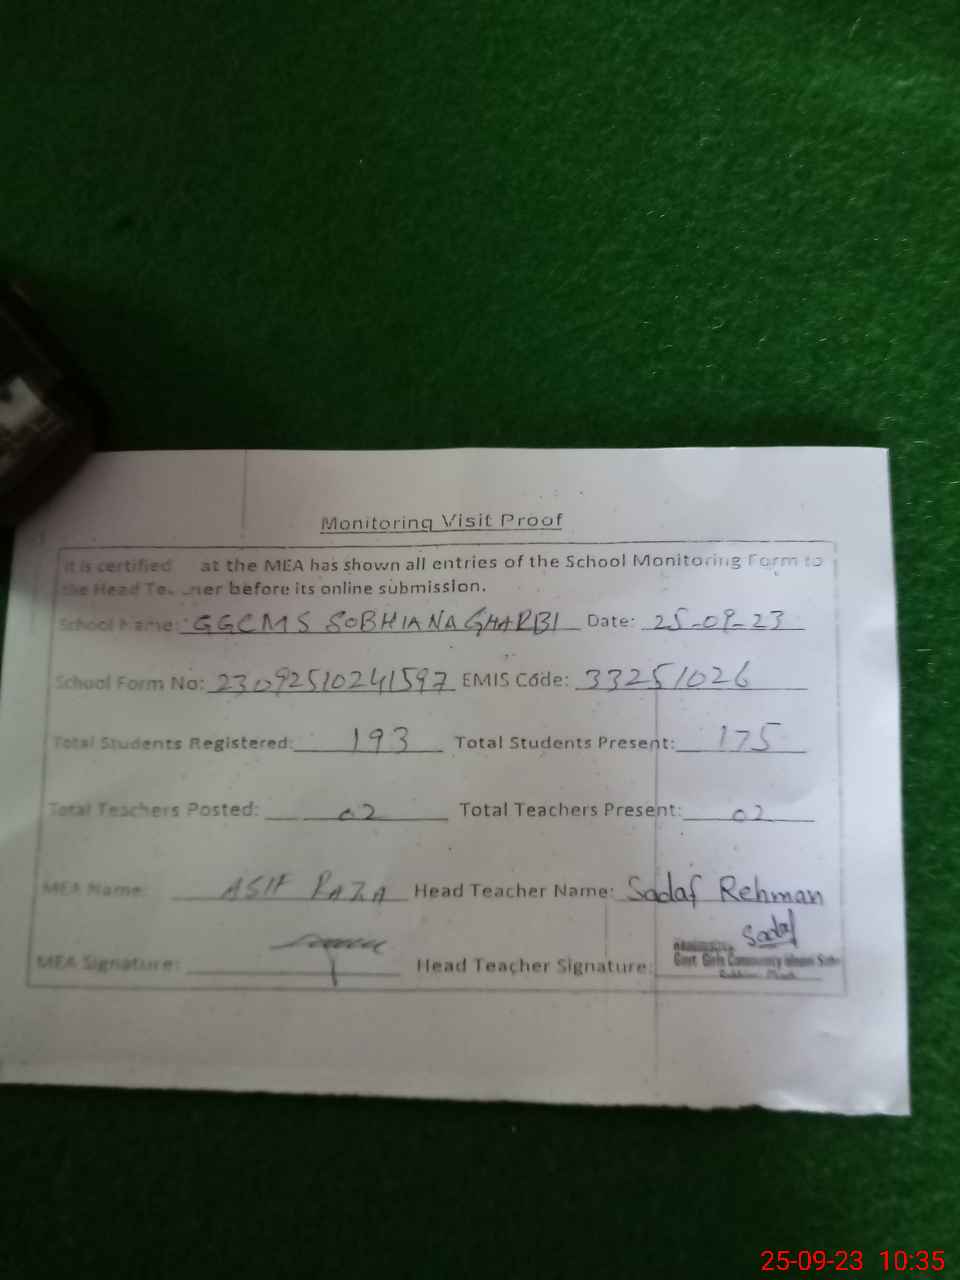 Monitoring Visit Proof
It is certified at the MEA has shown all entries of the School Monitoring Form to
the Head Te ner before its online submission.
School Name: GGCMS SOBHIANA GHARBI Date: 25-09-23
School Form No: 23092510241597 EMIS Code: 33251026
Total Students Registered: 193 Total Students Present: 175
Total Teachers Posted: 02 Total Teachers Present: 02
MEA Name: ASIF RAZA Head Teacher Name: Sadaf Rehman
Sadaf
MEA Signature: Head Teacher Signature: Govt Girls Community
25-09-23 10:35